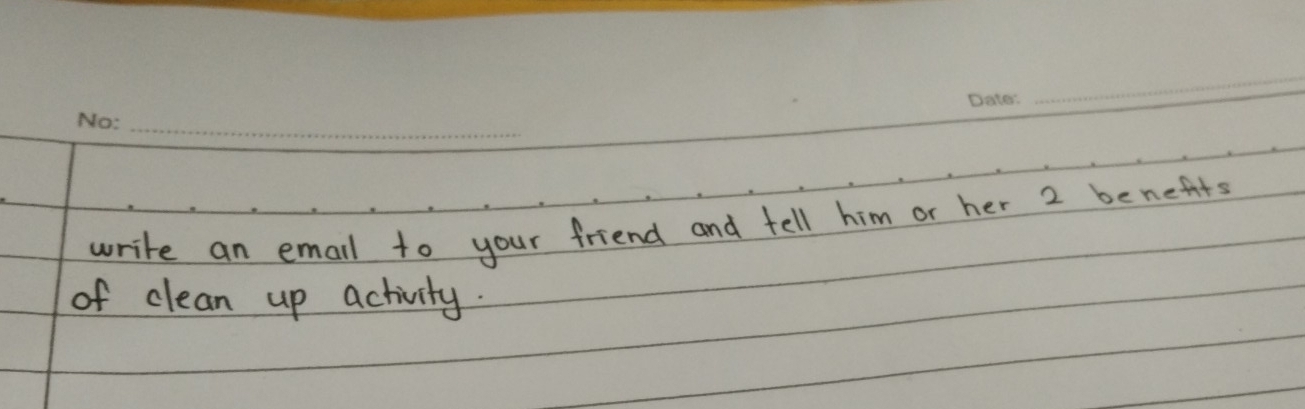 No:
Date:
write an email to your friend and tell him or her 2 benefits
of clean up activity.